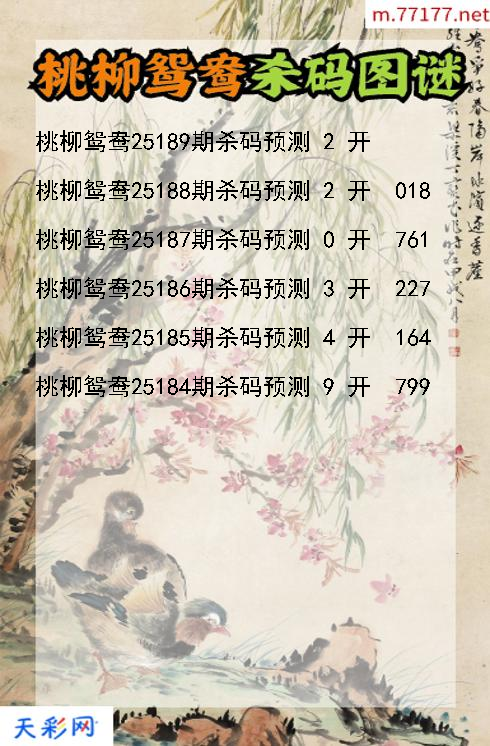 m.77177.net
桃柳鸳鸯杀码图谜
桃柳鸳鸯25189期杀码预测 2 开
桃柳鸳鸯25188期杀码预测 2 开 018
桃柳鸳鸯25187期杀码预测 0 开 761
桃柳鸳鸯25186期杀码预测 3 开 227
桃柳鸳鸯25185期杀码预测 4 开 164
桃柳鸳鸯25184期杀码预测 9 开 799
天彩网